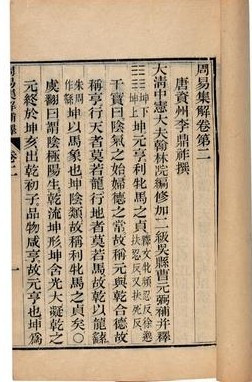 周易集解卷第二
唐資州李鼎祚撰
大清中憲大夫翰林院編修加二級吳縣曹元弼補并釋
坤下坤上 坤元亨利牝馬之貞 釋文牝頻忍反徐邈扶忍反又扶死反
干寶曰陰氣之始婦德之常故稱元與乾合德故
稱亨行天者莫若龍行地者莫若馬故乾以龍繇
坤以馬象也坤陰類故稱利牝馬之貞矣○
虞翻曰謂陰極陽生乾流坤形坤含光大凝乾之
元終於坤亥出乾初子品物咸亨故元亨也坤為
周易集解補釋 卷二 一